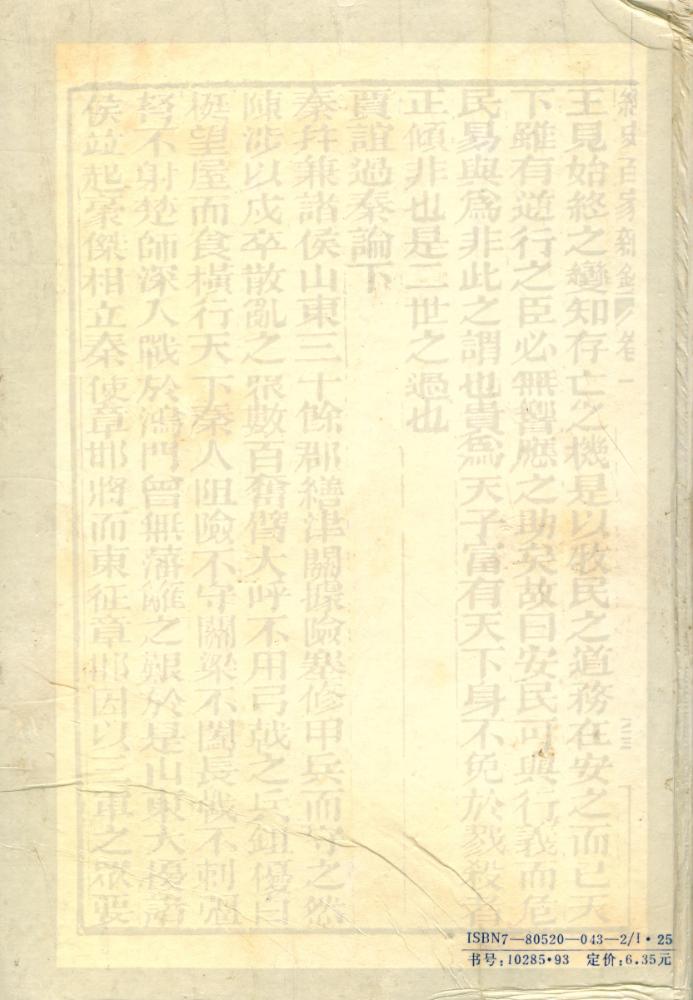 經史百家雜鈔 卷一
王見始終之變知存亡之機是以牧民之道務在安之而已天
下雖有逆行之臣必無響應之助矣故曰安民可與行義而危
民易與為非此之謂也貴為天子富有天下身不免於戮殺者
正傾非也是二世之過也
賈誼過秦論下
秦并兼諸侯山東三十餘郡繕津關據險塞修甲兵而守之然
陳涉以戍卒散亂之眾數百奮臂大呼不用弓戟之兵鉏櫌白
梃望屋而食橫行天下秦人阻險不守關梁不闔長戟不刺彊
弩不射楚師深入戰於鴻門曾無藩籬之艱於是山東大擾諸
侯竝起豪傑相立秦使章邯將而東征章邯因以三軍之眾要
ISBN7—80520—043—2/I·25
书号:10285·93 定价:6.35元